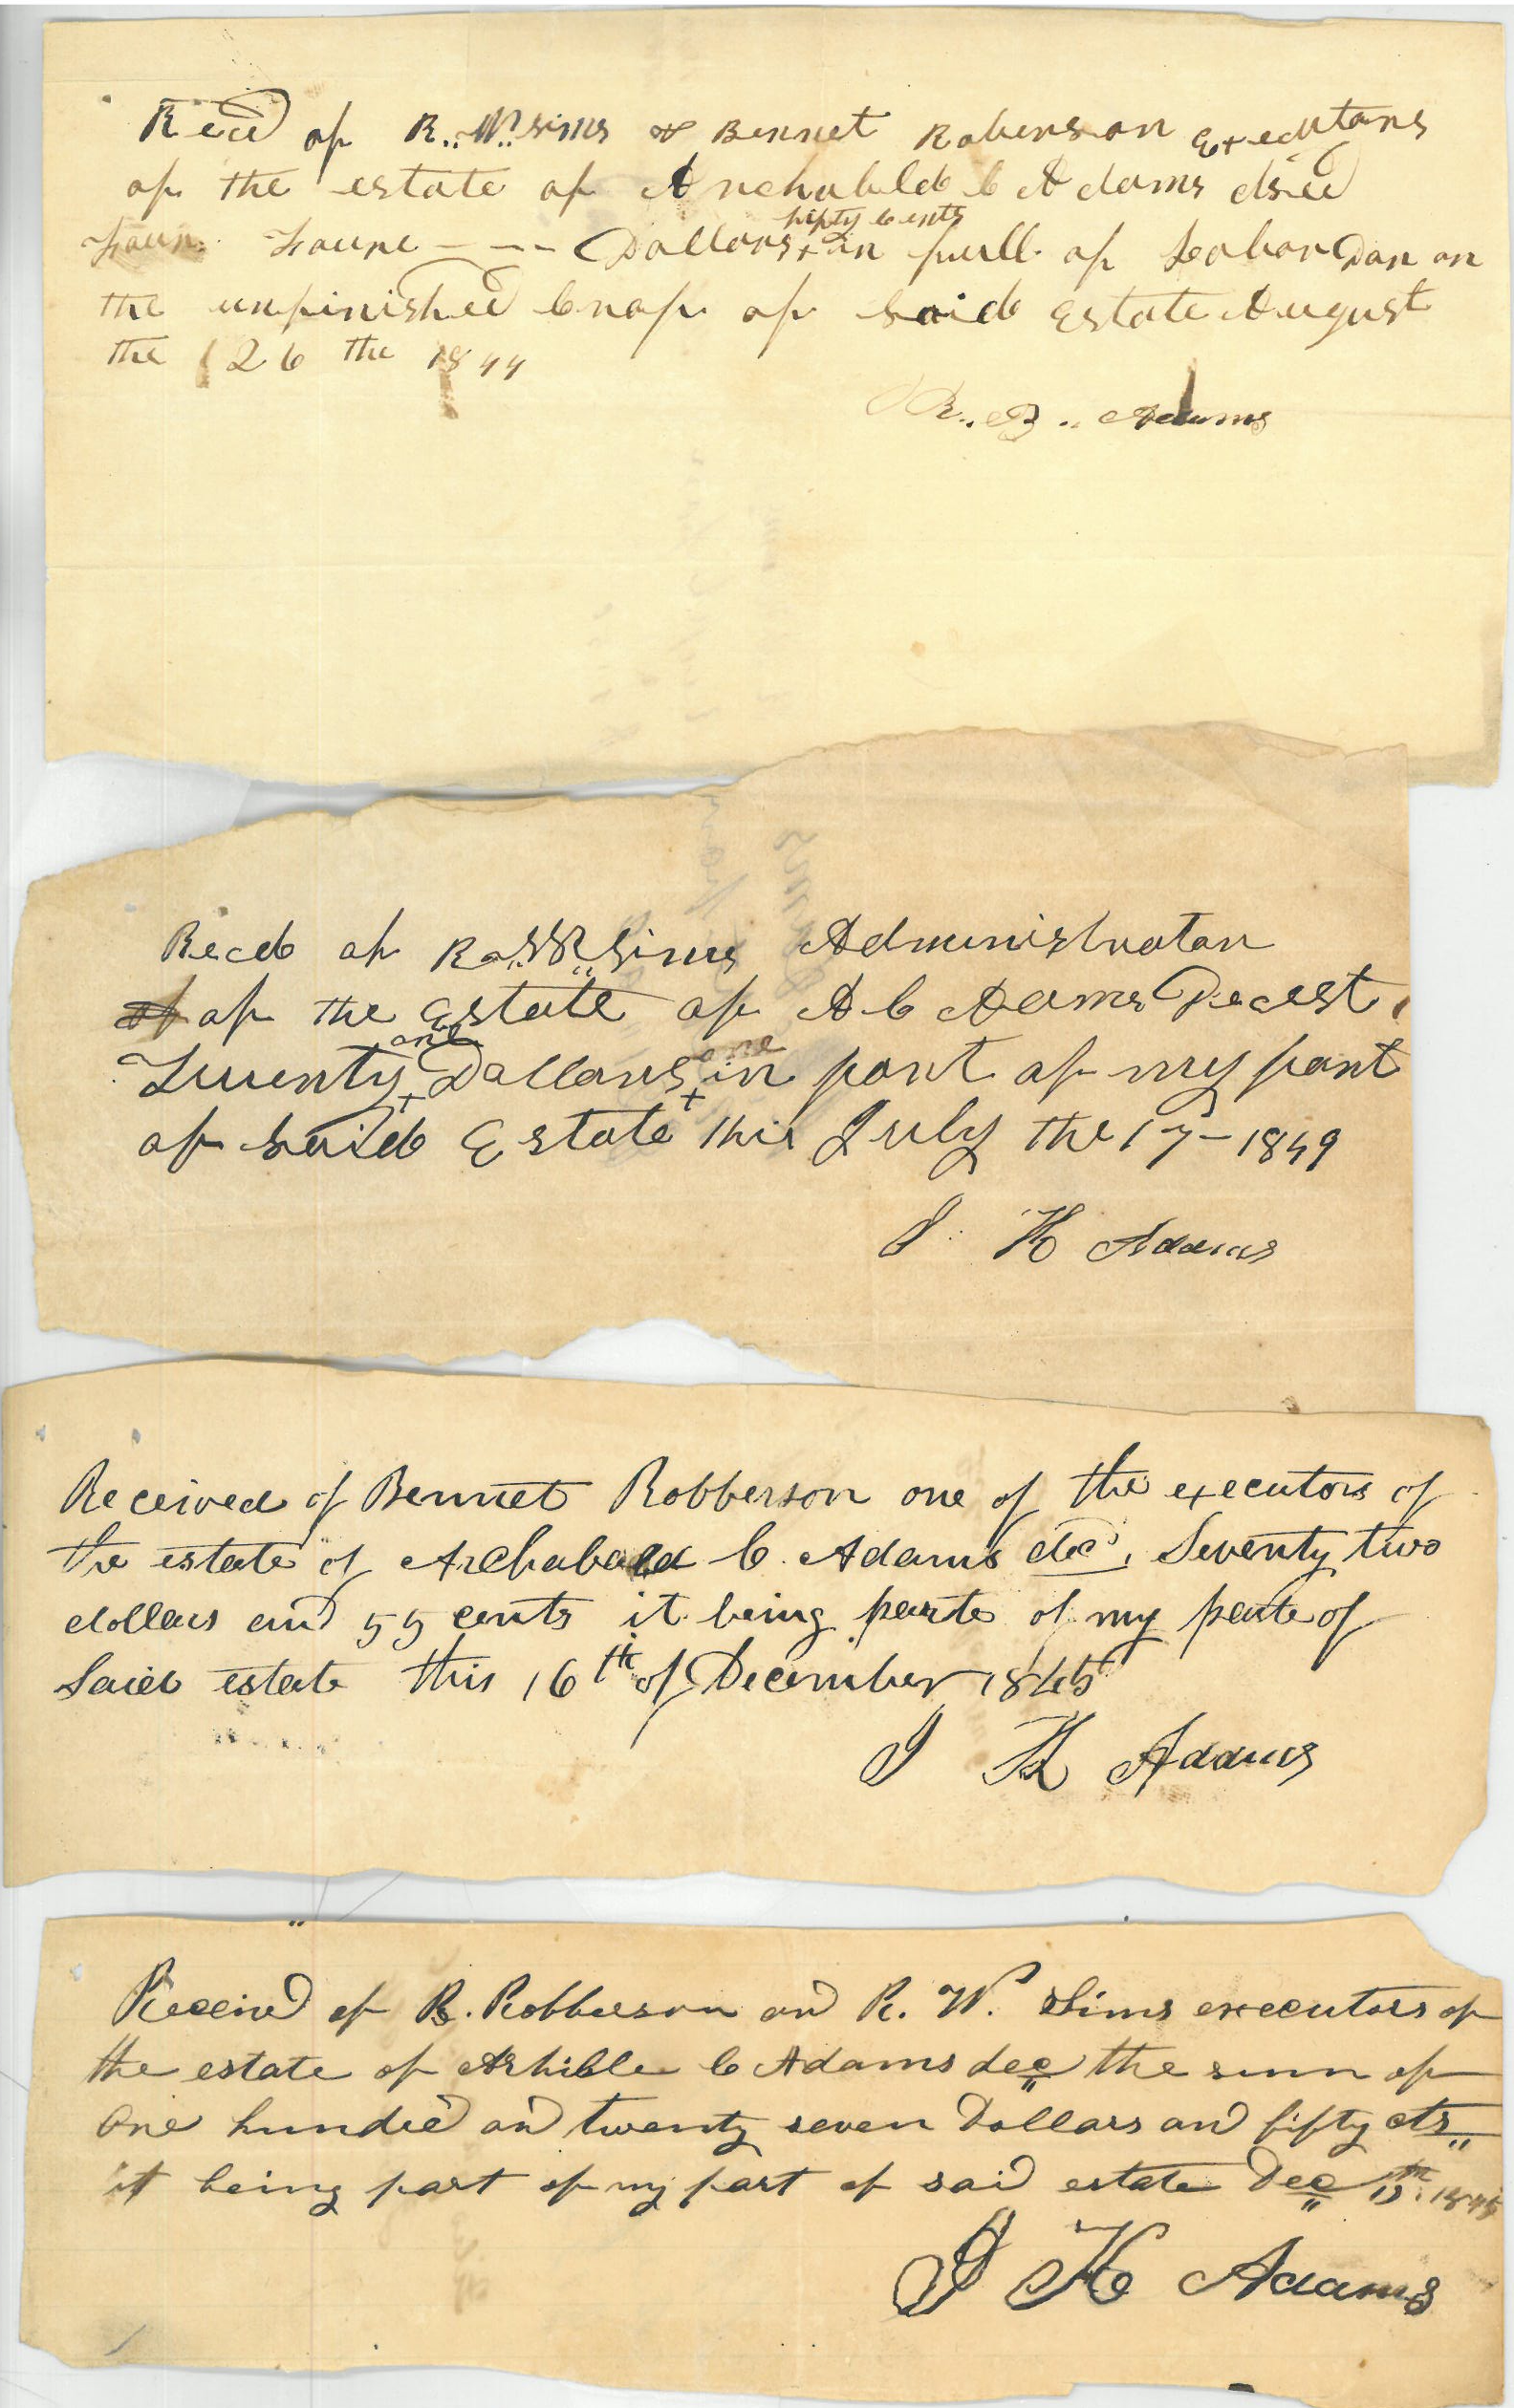 Recd of R. W. Sims & Bennet Roberson Executors
of the estate of Archabald C Adams dsed
Foure --- Dollars + in full of Labor Don on
fifty Cents
the unfinished Crop of Said Estate August
the 26 the 1844
R. B. Adams
Recd of R. W. Sims Administrator
of the Estate of A C Adams Decest
one one
Twenty + Dollars + in part of my part
of Said Estate this July the 17 - 1849
J H Adams
Received of Bennet Robberson one of the executors of
the estate of Archabald C. Adams decd, Seventy two
dollars and 55 cents it being parte of my parte of
Said estate this 16th of December 1845
J H Adams
Received of B. Robberson and R. W. Sims executors of
the estate of Arhible C Adams dec the sum of
One hundred and twenty seven Dollars and fifty cts
it being part of my part of said estate Dec 1845
J H Adams